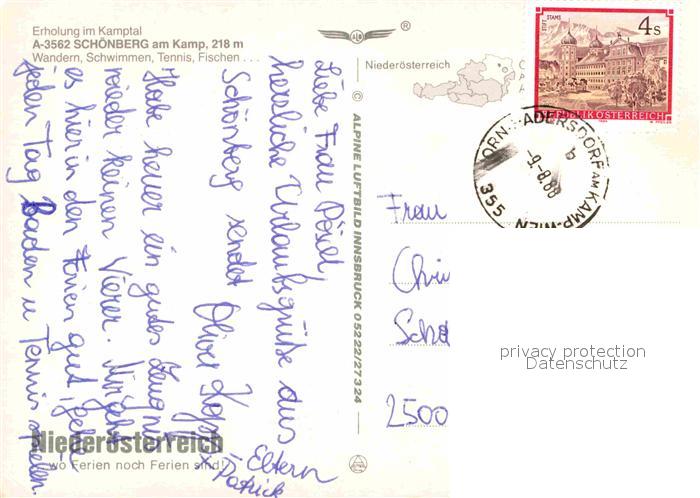 Erholung im Kamptal
A-3562 SCHÖNBERG am Kamp, 218 m
Wandern, Schwimmen, Tennis, Fischen . . .
®
Niederösterreich
STIFT STAMS
4 S
REPUBLIK ÖSTERREICH
ADERSDORF AM KAMP-WIEN
-9.-8.88
b
355
© ALPINE LUFTBILD INNSBRUCK 05222/27324
Liebe Frau
herzliche Urlaubsgrüße aus
Schönberg sendet Oliver
Eltern
Patrick
Habe heuer ein gutes Zeugnis
wieder keinen Vierer. Mir geht
es hier in den Ferien gut, gehe
jeden Tag Baden u Tennis spielen.
Frau
Chri
Sch
2500
privacy protection
Datenschutz
Niederösterreich
wo Ferien noch Ferien sind!